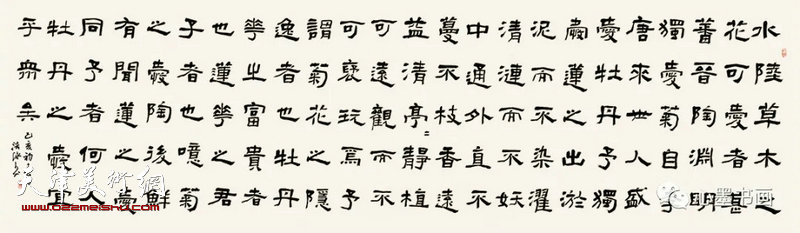 水陸草木之
花可愛者甚
蕃晉陶淵明
獨愛菊自李
唐來世人盛
愛牡丹予獨
愛蓮之出淤
泥而不染濯
清漣而不妖
中通外直不
蔓不枝香遠
益清亭=静植
可遠觀而不
可褻玩焉予
謂菊花之隱
逸者也牡丹
華之富貴者
也蓮華之君
子者也噫菊
之愛陶後鮮
有聞蓮之愛
同予者何人
牡丹之愛宜
乎衆矣
天津美術網
www.022meishu.com
心墨书画